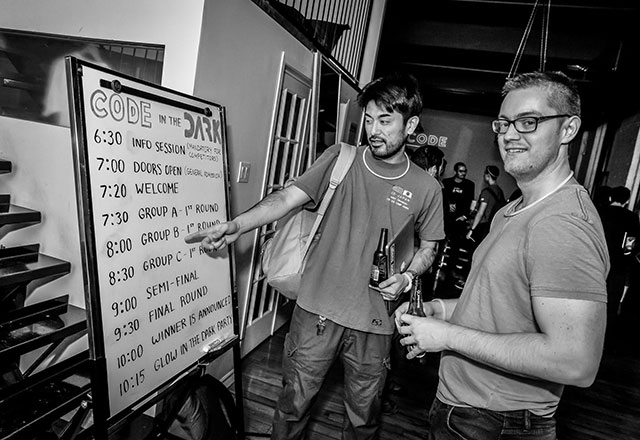 CODE IN THE DARK
6:30 INFO SESSION (MANDATORY FOR COMPETITORS)
7:00 DOORS OPEN (GENERAL ADMISSION)
7:20 WELCOME
7:30 GROUP A - 1ST ROUND
8:00 GROUP B - 1ST ROUND
8:30 GROUP C - 1ST ROUND
9:00 SEMI-FINAL
9:30 FINAL ROUND
10:00 WINNER IS ANNOUNCED
10:15 GLOW IN THE DARK PARTY
CODE